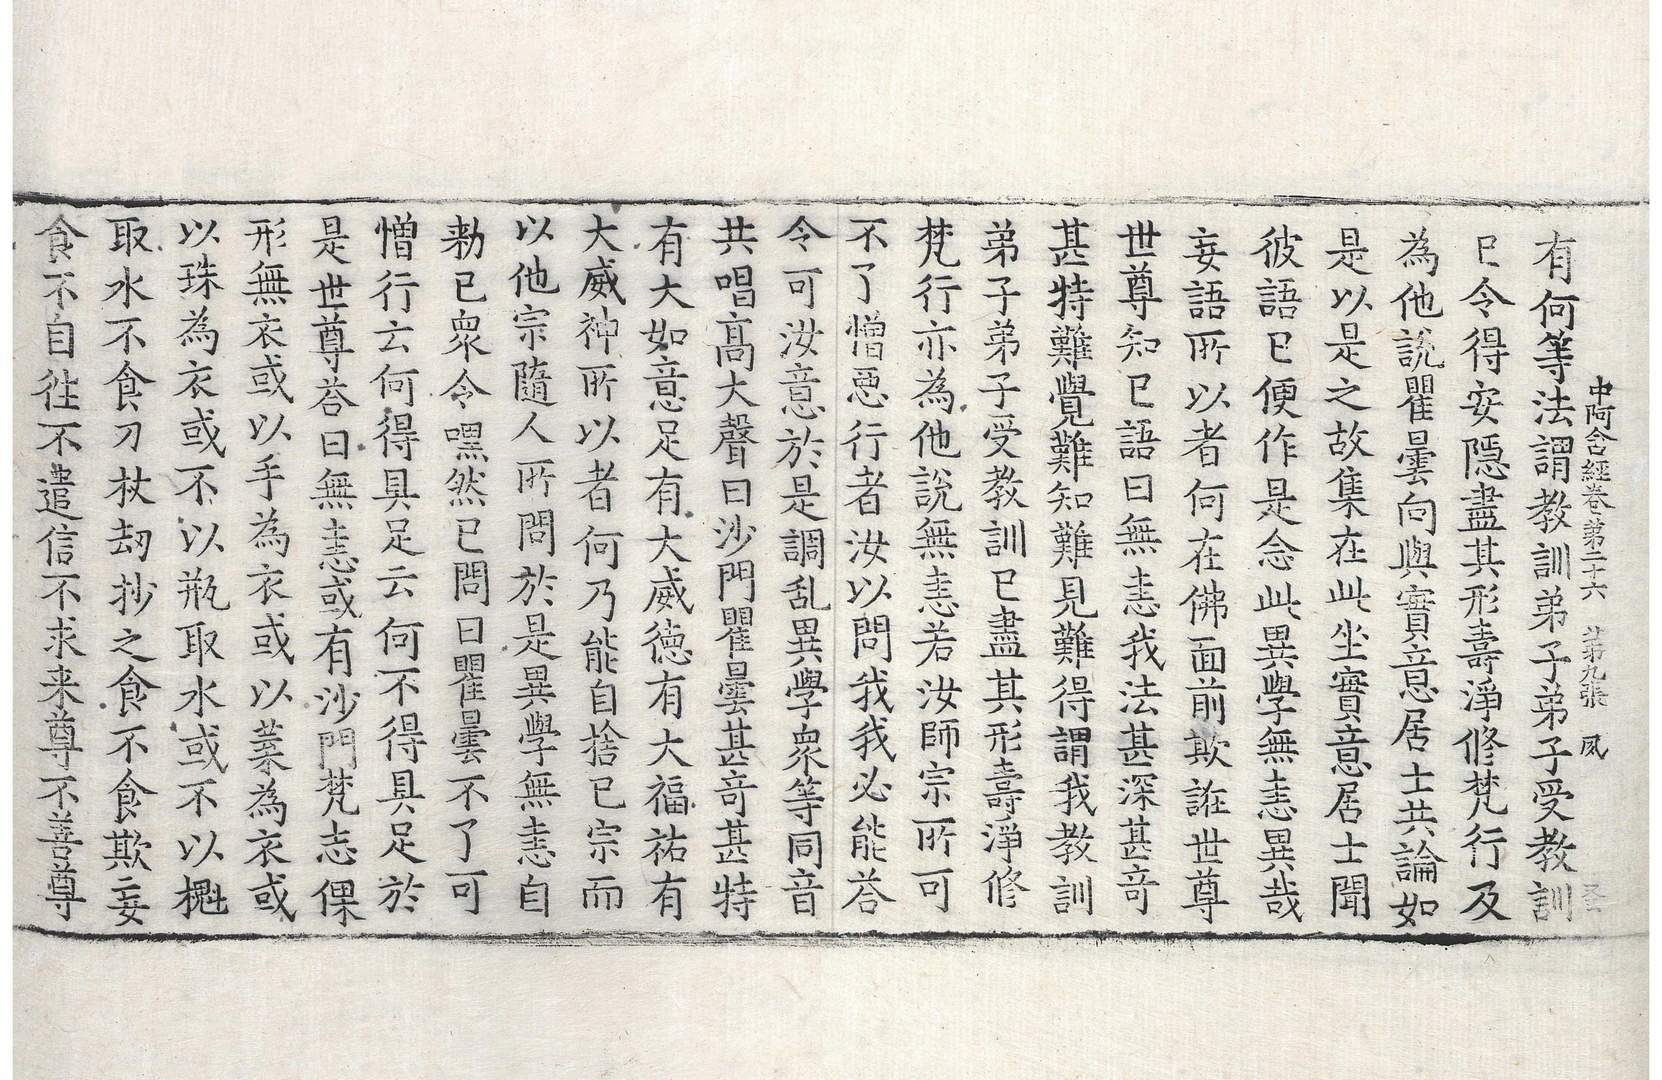 中阿含經卷第二十六 第九張 夙
有何等法謂教訓弟子弟子受教訓
已令得安隱盡其形壽淨修梵行及
為他說瞿曇向與實意居士共論如
是以是之故集在此坐實意居士聞
彼語已便作是念此異學無恚異哉
妄語所以者何在佛面前欺誑世尊
世尊知已語曰無恚我法甚深甚奇
甚特難覺難知難見難得謂我教訓
弟子弟子受教訓已盡其形壽淨修
梵行亦為他說無恚若汝師宗所可
不了憎惡行者汝以問我我必能荅
令可汝意於是調乱異學衆等同音
共唱高大聲曰沙門瞿曇甚奇甚特
有大如意足有大威德有大福祐有
大威神所以者何乃能自捨已宗而
以他宗隨人所問於是異學無恚自
勑已衆令嘿然已問曰瞿曇不了可
憎行云何得具足云何不得具足於
是世尊荅曰無恚或有沙門梵志倮
形無衣或以手為衣或以葉為衣或
以珠為衣或不以瓶取水或不以魁
取水不食刀杖刼抄之食不食欺妄
食不自往不遣信不求来尊不善尊